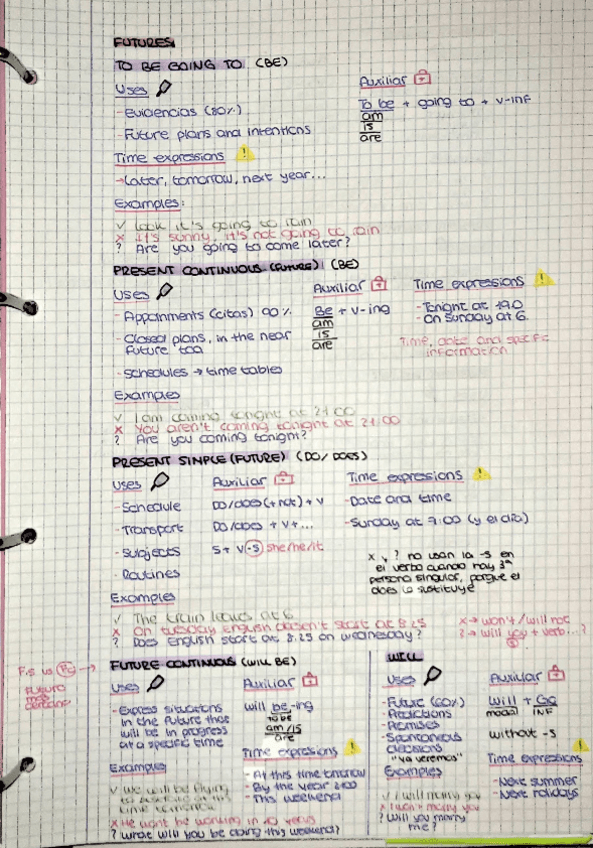 FUTURES
TO BE GOING TO (BE)
Uses
Auxiliar
- Evidencias (80%)
To be + going to + v-inf
am
is
are
- Future plans and intentions
Time expressions
→ Later, tomorrow, next year...
Examples:
✓ Look it's going to rain
x It's sunny, it's not going to rain
? Are you going to come later?
PRESENT CONTINUOUS (FUTURE) (BE)
Uses
Auxiliar
Time expressions
- Appointments (citas) 90%
Be + v-ing
am
is
are
- Tonight at
- On Sunday at 6.
- Closed plans, in the near
future too
Time, date and specific
information
- Schedules → time tables
Examples
✓ I am coming tonight at 21:00
x You aren't coming tonight at 21:00
? Are you coming tonight?
PRESENT SIMPLE (FUTURE) (DO/DOES)
Uses
Auxiliar
Time expressions
- Schedule
DO/does (+not) + V
- Date and time
- Transport
DO/does + V+...
- Sunday at 7:00 (y el día)
- Subjects
S + V-S she/he/it
- Routines
x y ? no usan la -s en
el verbo cuando hay 3ª
persona singular, porque el
does lo sustituye
Examples
✓ The train leaves at 6
x On tuesday English doesn't start at 8:25
? Does English start at 8:25 on wednesday?
x → won't/will not
? → will you + verb...?
F.S vs FC →
futuro
más
cercano
FUTURE CONTINUOUS (WILL BE)
Uses
Auxiliar
- Express situations
in the future that
will be in progress
at a specific time
will be -ing
to be
am/is
are
Time expressions
- At this time tomorrow
- By the year 2100
- This weekend
Examples
✓ We will be flying
to at this
time tomorrow
x He won't be working in 10 years
? What will you be doing this weekend?
WILL
Uses
Auxiliar
- Future (60%)
- Predictions
- Promises
- Spontaneous
decisions
"ya veremos"
Will + GO
modal INF
without -s
Time expressions
- Next summer
- Next holidays
Examples
✓ I will marry you
x I won't marry you
? Will you marry
me?